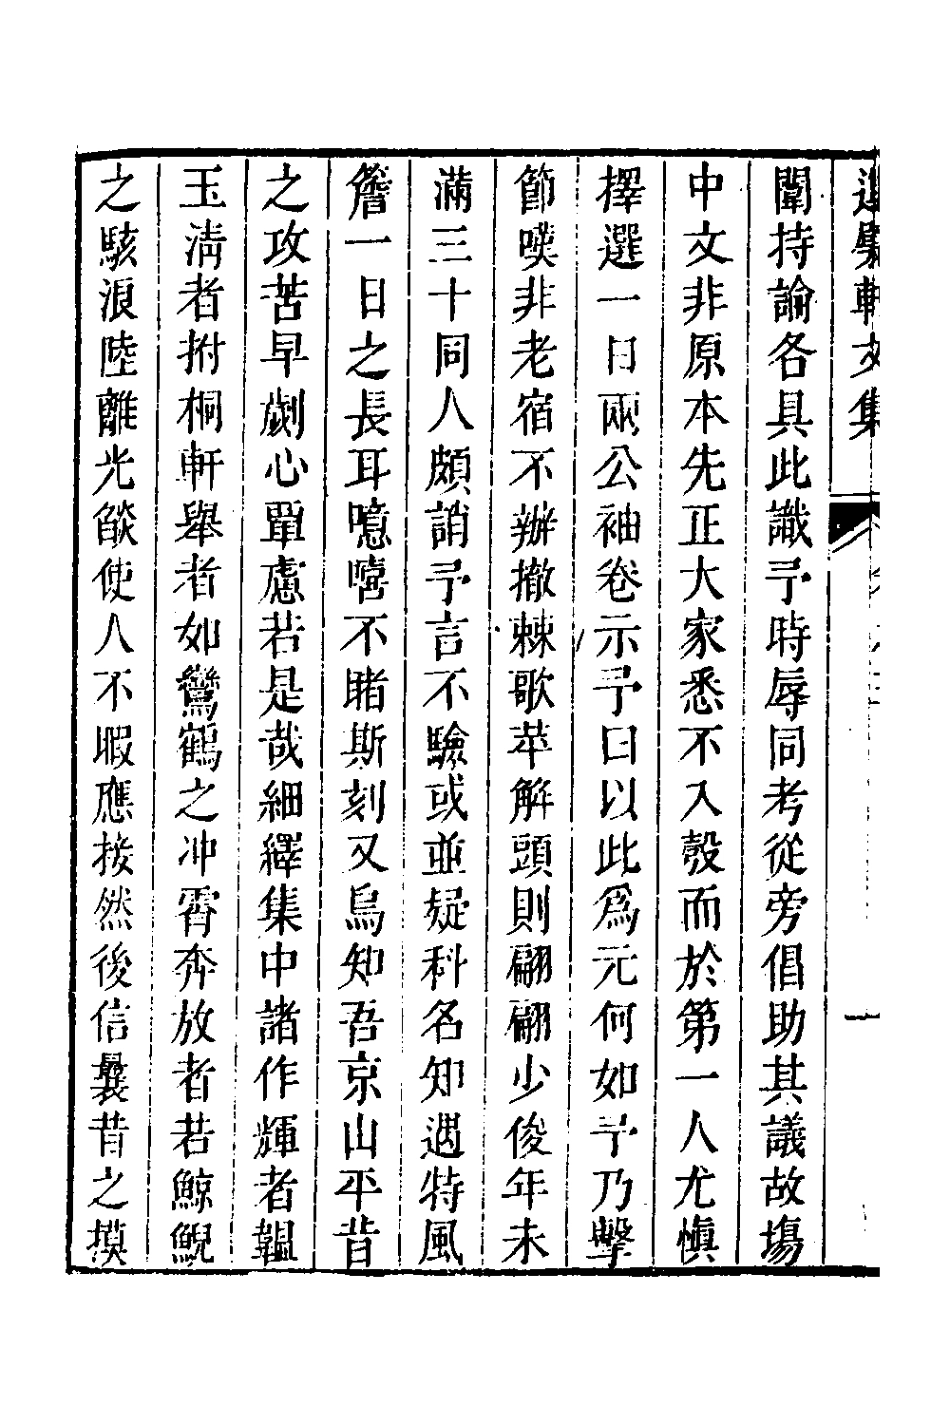 軒文集
一
闈持論各具此識予時辱同考從旁倡助其議故塲
中文非原本先正大家悉不入彀而於第一人尤愼
擇選一日兩公袖卷示予曰以此爲元何如予乃擊
節嘆非老宿不辦撤棘歌苹解頭則翩翩少俊年未
滿三十同人頗誚予言不驗或並疑科名知遇特風
簷一日之長耳噫嘻不睹斯刻又烏知吾京山平昔
之攻苦早劌心覃慮若是哉細繹集中諸作輝者韞
玉淸者拊桐軒舉者如鸞鶴之冲霄奔放者若鯨鯢
之駭浪陸離光燄使人不暇應接然後信曩昔之摸